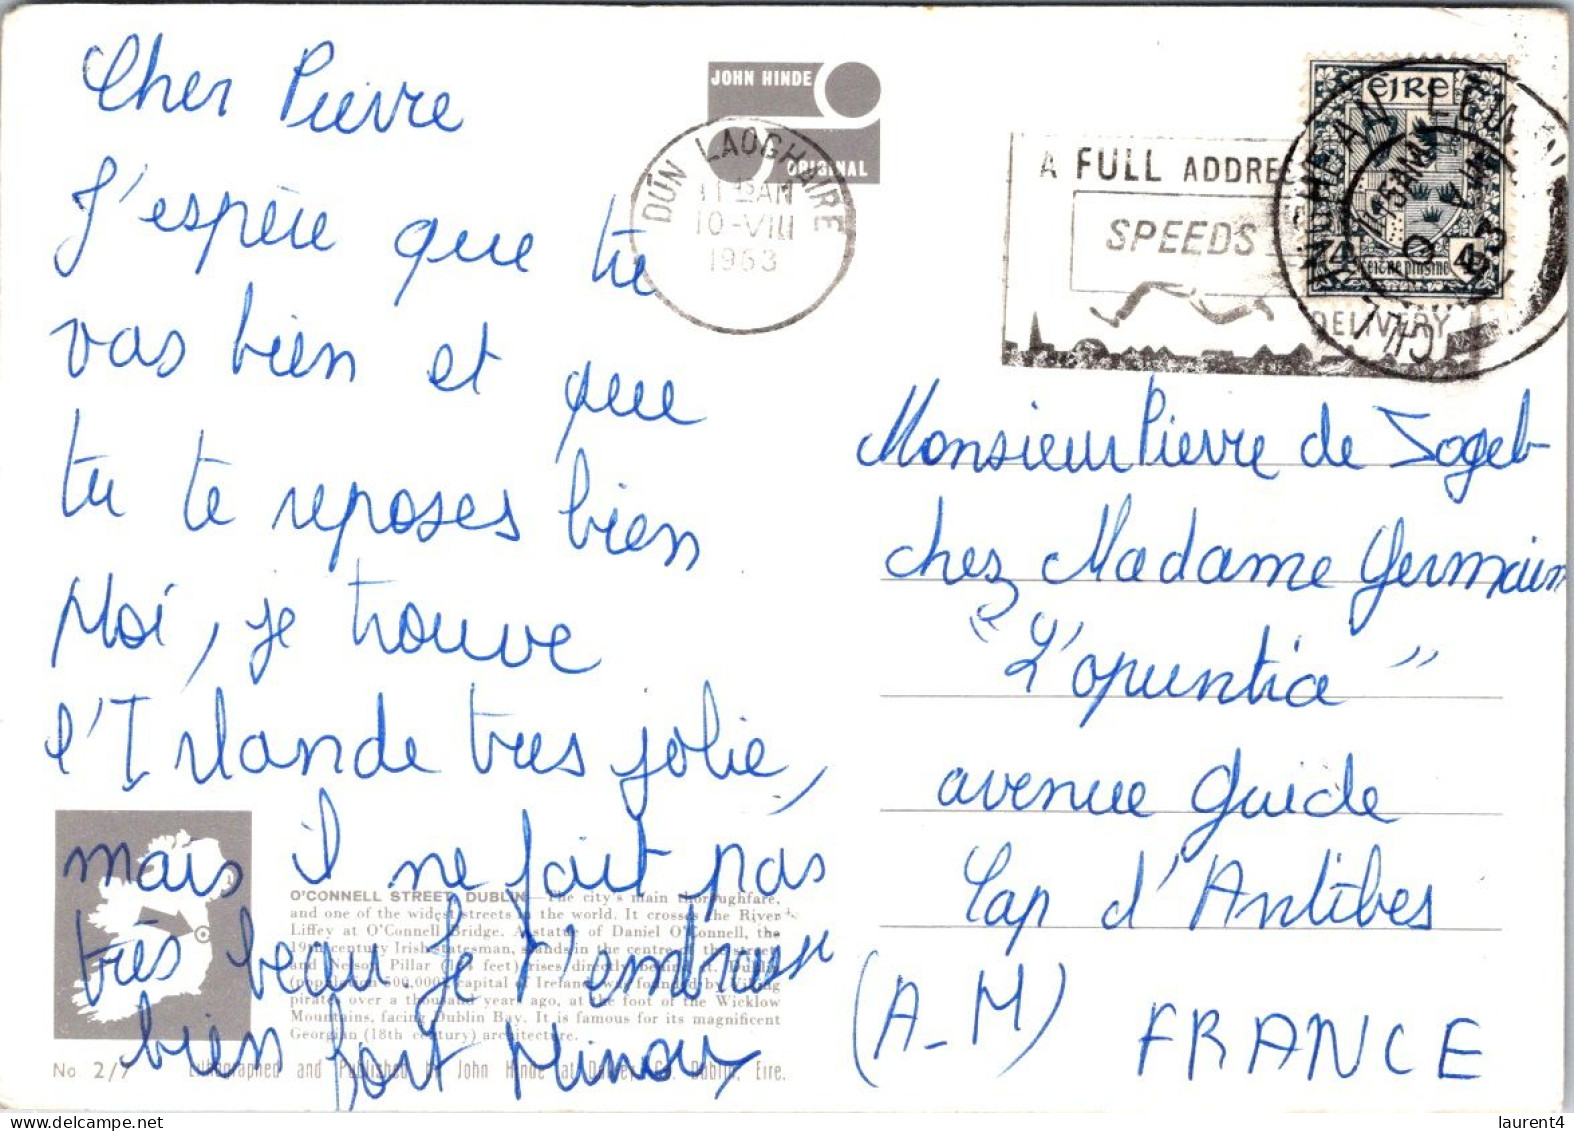 Cher Pierre
J'espère que tu
vas bien et que
tu te reposes bien
Moi, je trouve
l'Irlande très jolie,
mais il ne fait pas
très beau Je t'embrasse
bien fort Minou
JOHN HINDE
ORIGINAL
DÚN LAOGHAIRE
11 15 AM
10-VIII
1963
A FULL ADDRE
SPEEDS
DELIVERY
ÉIRE
Monsieur Pierre de
chez Madame Germain
"L'opuntia"
avenue Guide
Cap d'Antibes
(A-M) FRANCE
O'CONNELL STREET, DUBLIN—The city's main thoroughfare,
and one of the widest streets in the world. It crosses the River
Liffey at O'Connell Bridge. A statue of Daniel O'Connell, the
19th century Irish statesman, stands in the centre of the street
and Nelson Pillar (134 feet) rises directly behind it. Dublin
(population 500,000) capital of Ireland was founded by Viking
pirates over a thousand years ago, at the foot of the Wicklow
Mountains, facing Dublin Bay. It is famous for its magnificent
Georgian (18th century) architecture.
No 2/7 Lithographed and Published by John Hinde Ltd. Dublin, Eire.
laurent4